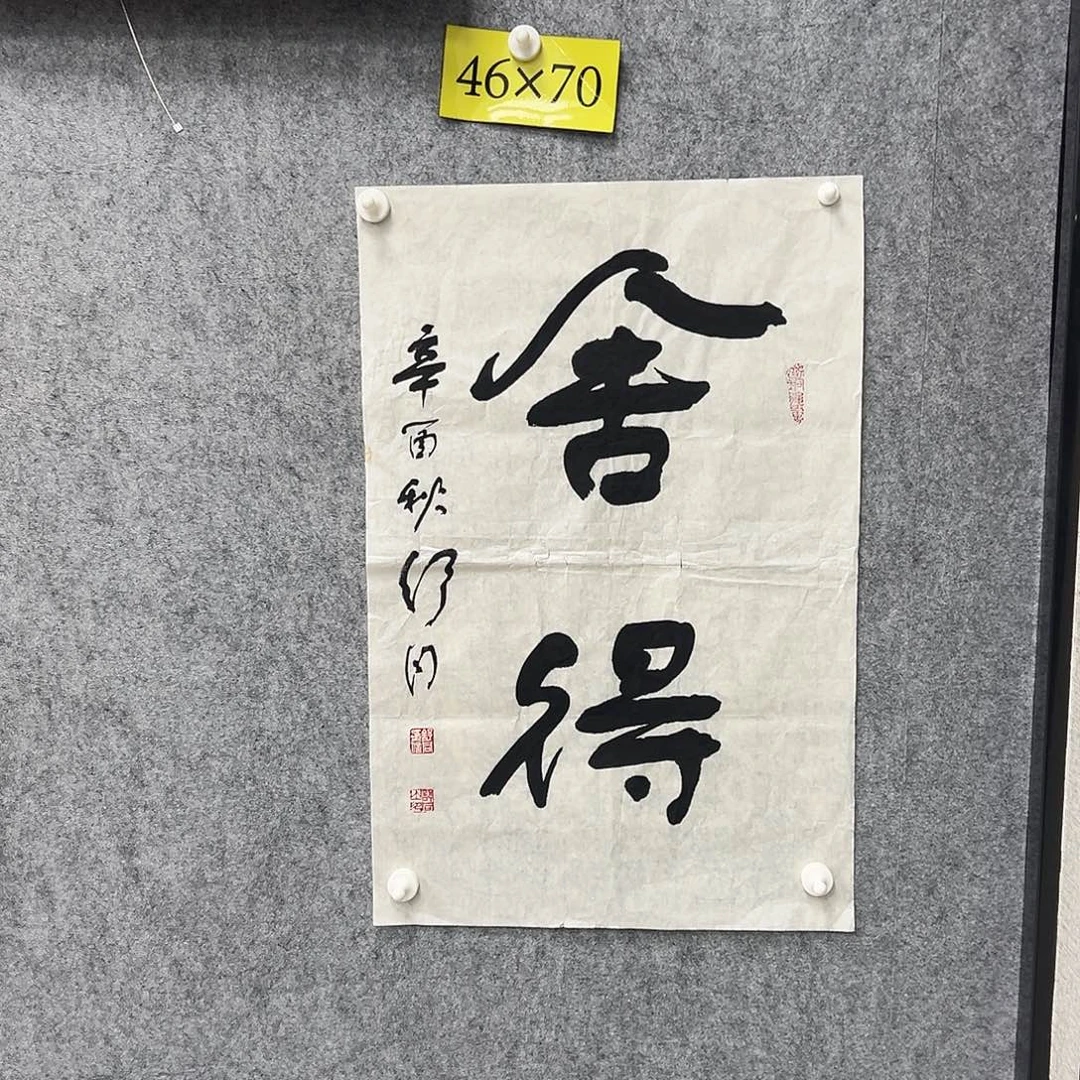 46×70
舍得
辛酉秋舒同